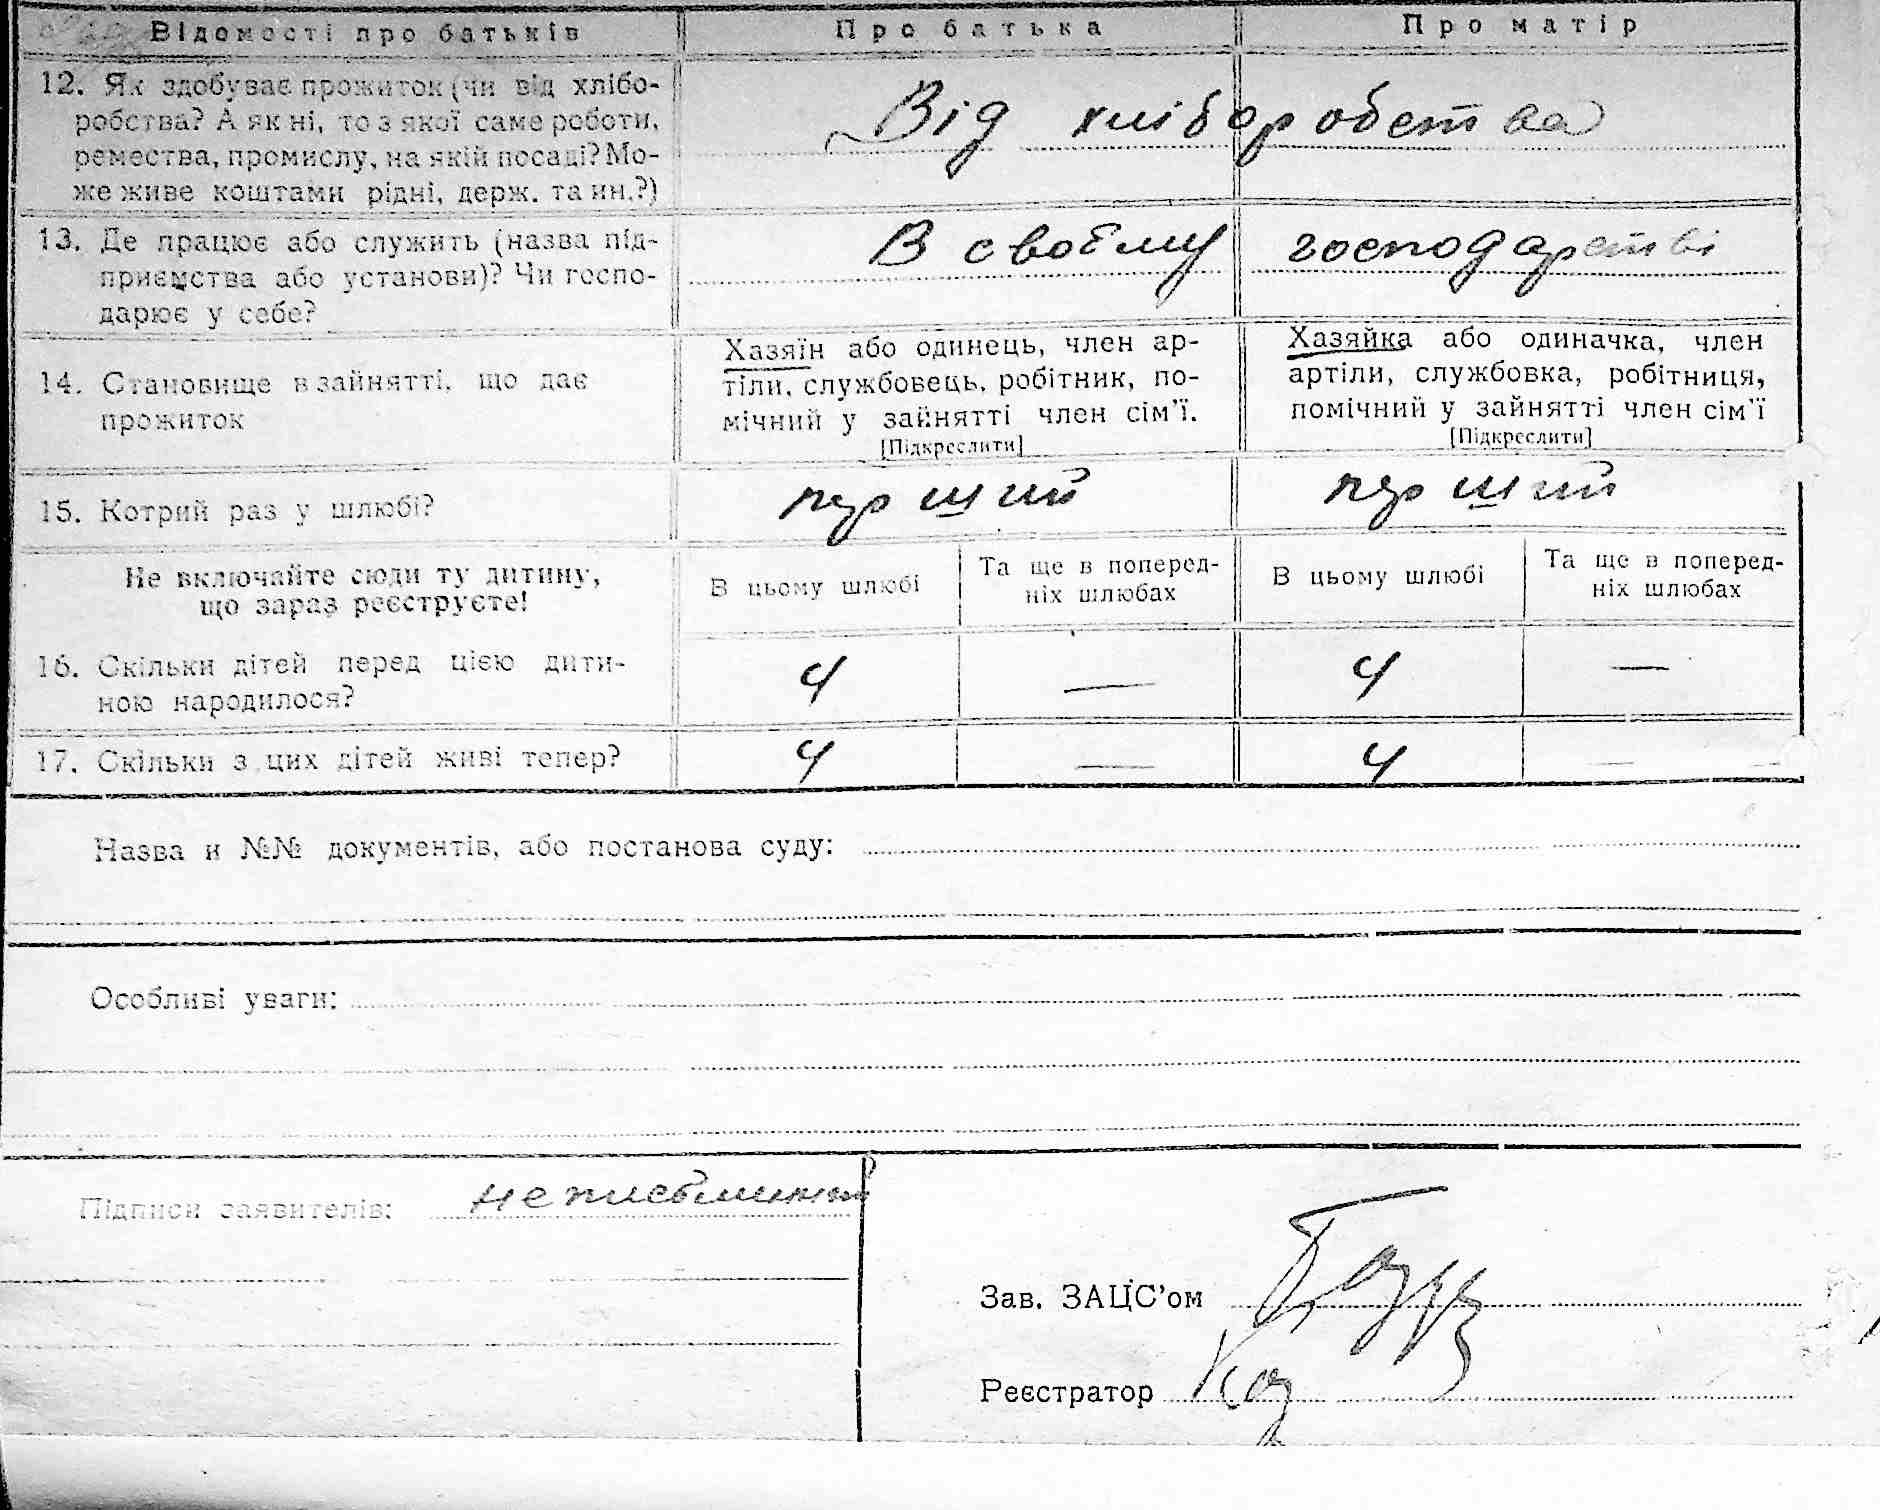 Відомості про батьків Про батька Про матір
12. Як здобуває прожиток (чи від хлібо-
робства? А як ні, то з якої саме роботи,
ремества, промислу, на якій посаді? Мо-
же живе коштами рідні, держ. та ин.?)
Від хліборобства
13. Де працює або служить (назва під-
приємства або установи)? Чи госпо-
дарює у себе?
В своєму господарстві
14. Становище в зайнятті, що дає
прожиток
Хазяїн або одинець, член ар-
тіли, службовець, робітник, по-
мічний у зайнятті член сім'ї.
[Підкреслити]
Хазяйка або одиначка, член
артіли, службовка, робітниця,
помічний у зайнятті член сім'ї
[Підкреслити]
15. Котрий раз у шлюбі?
перший перший
Не включайте сюди ту дитину,
що зараз реєструєте!
В цьому шлюбі
Та ще в поперед-
ніх шлюбах
В цьому шлюбі
Та ще в поперед-
ніх шлюбах
16. Скільки дітей перед цією дити-
ною народилося?
4 — 4 —
17. Скільки з цих дітей живі тепер? 4 — 4 —
Назва и №№ документів, або постанова суду:
Особливі уваги:
Підписи заявителів: неписьминий
Зав. ЗАЦС'ом
Реєстратор